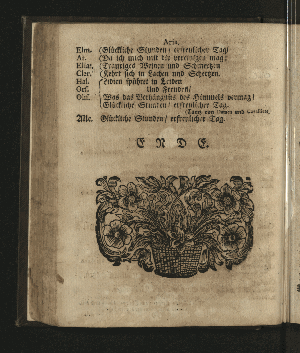 Aria.
Elm. (Glückliche Stunden/ erfreulicher Tag/
Ar. (Da ich mich mit dir vereinigen mag/
Elias. (Trauriges Weinen und Schmerzen
Cler. (Kehrt sich in Lachen und Schertzen.
Hal. (Leiden spühret in Leiden
Orf. Und Freuden/
Olif. (Was das Verhängnüs des Himmels vermag/
(Glückliche Stunden/ erfreulicher Tag.
(Tantz von Damen und Cavalliers)
Alle. Glückliche Stunden/ erfreulicher Tag.
E N D E.